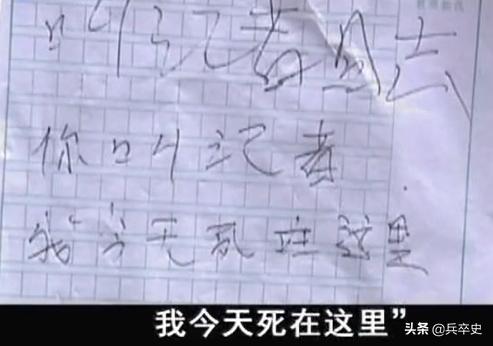 叫记者去
你叫记者.
我今天死在这里
我今天死在这里”
头条 @兵卒史